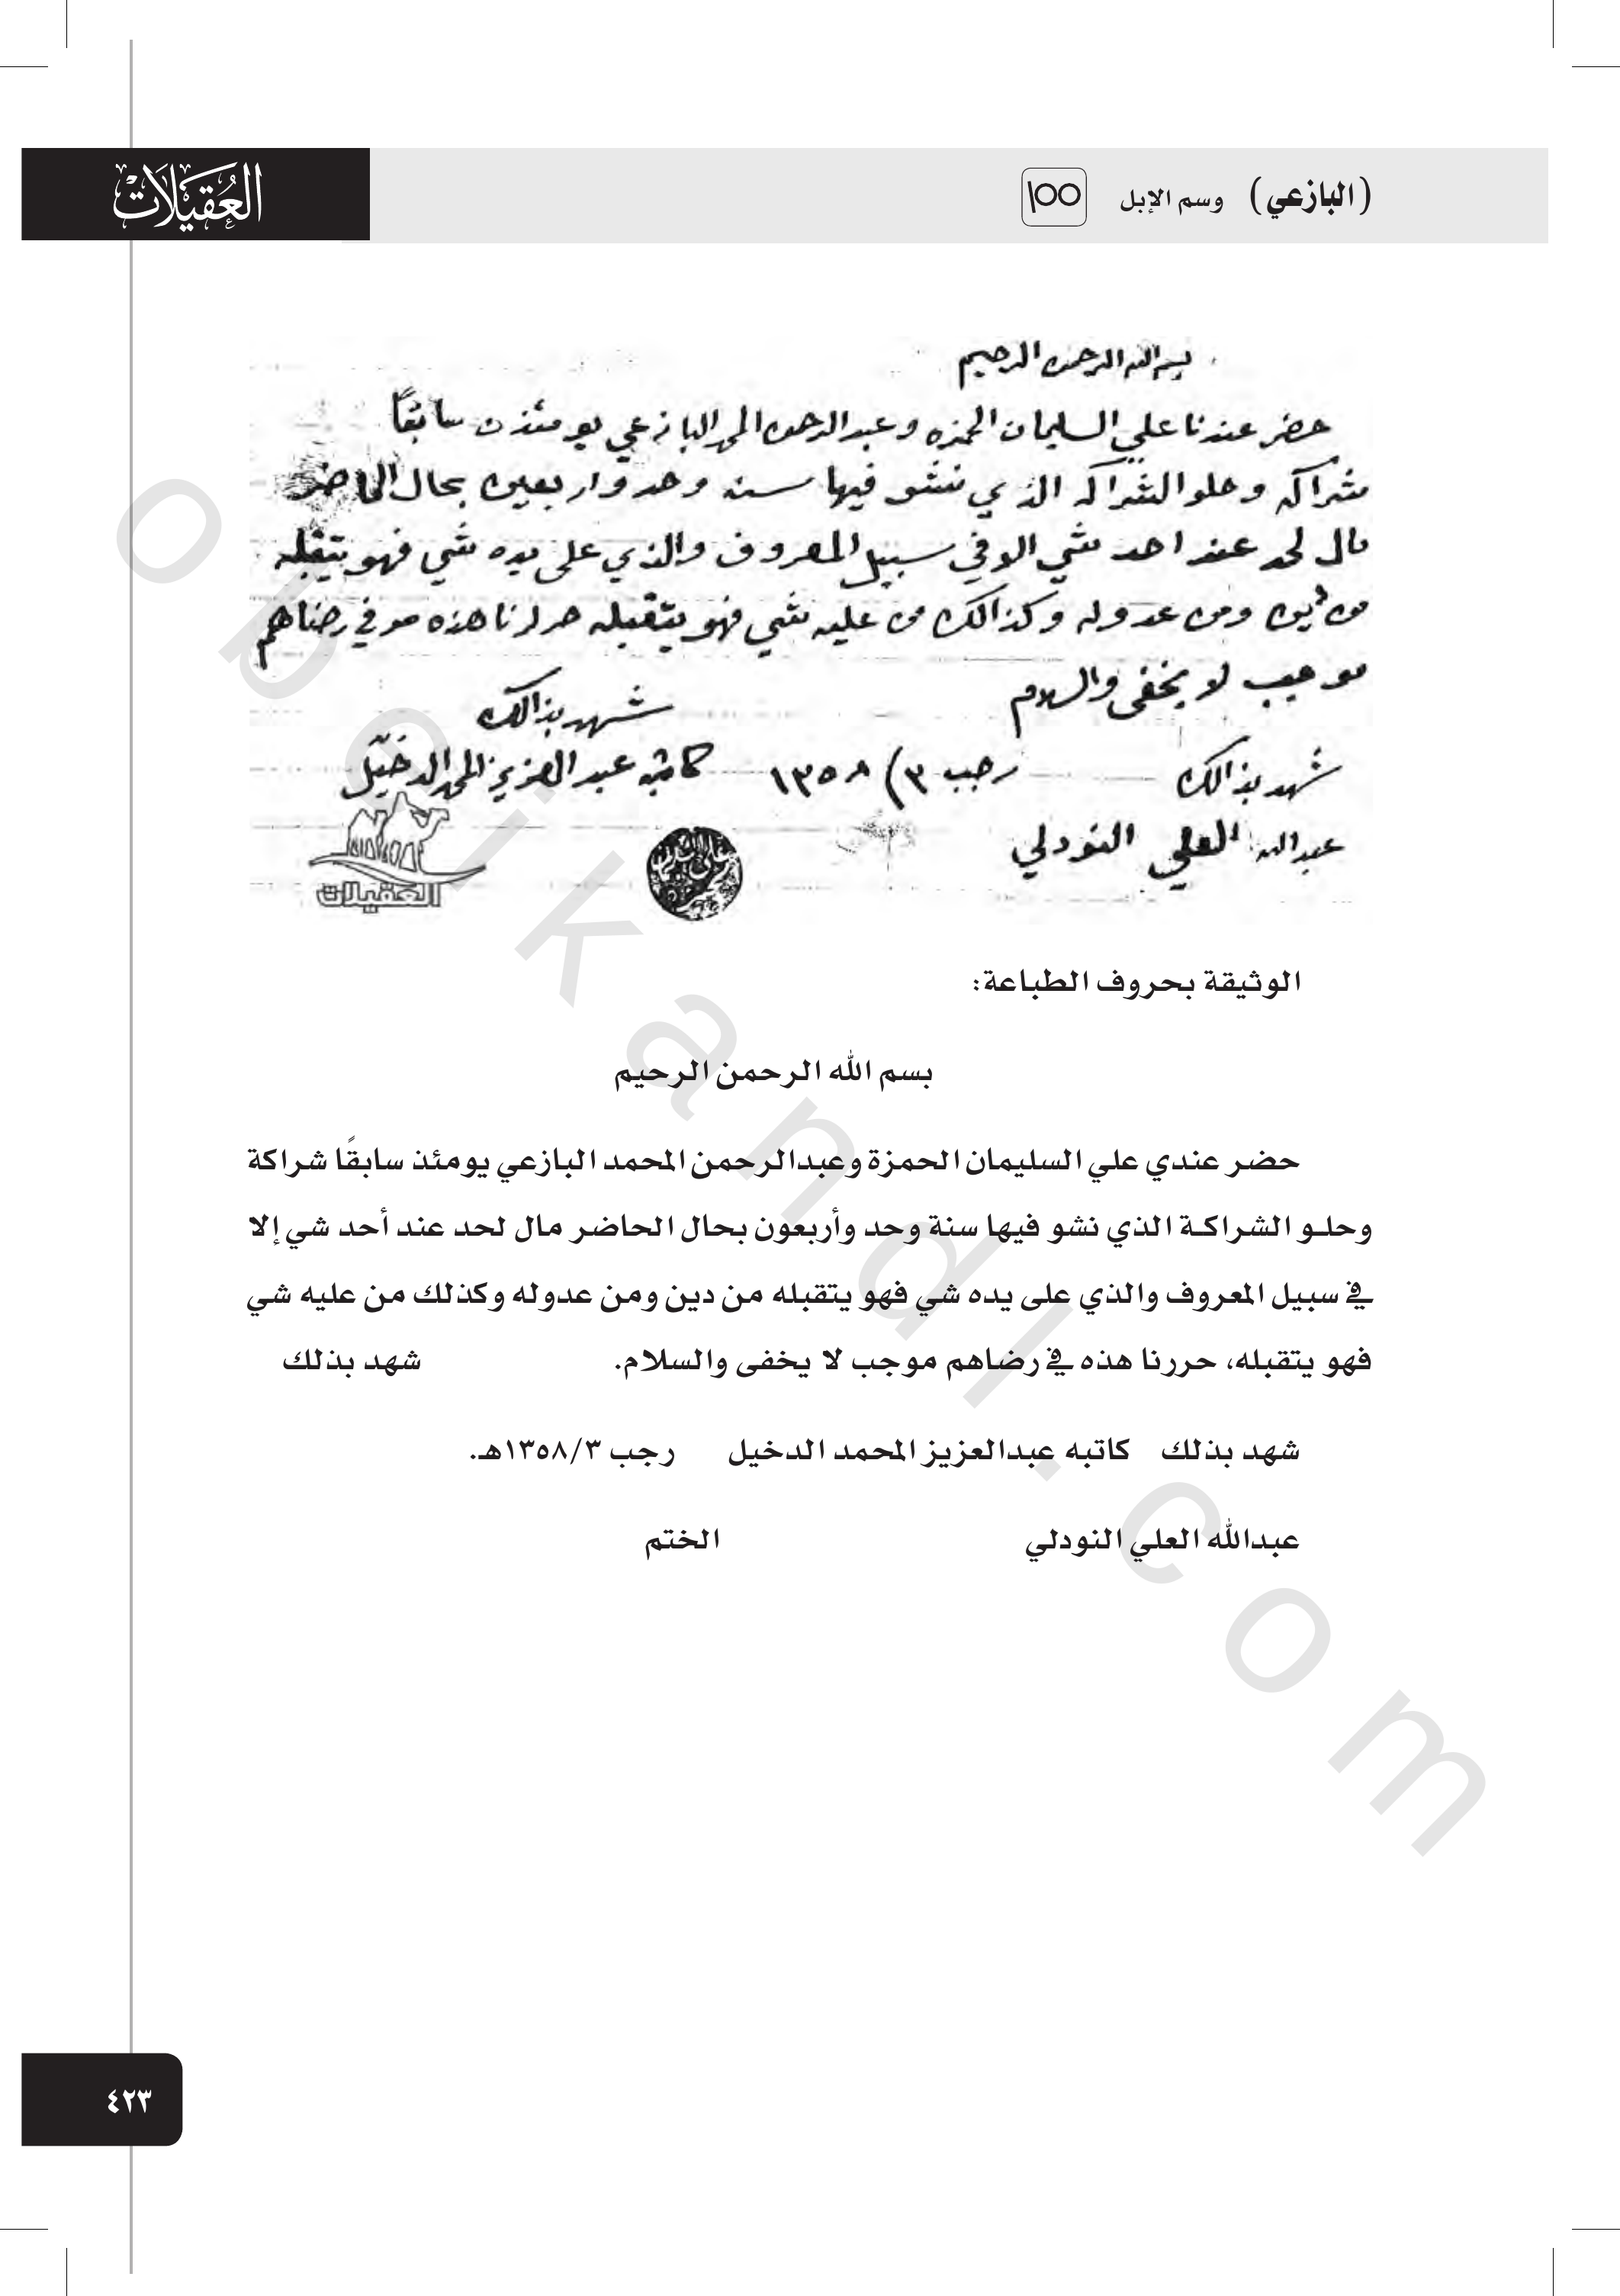 (البازعي) وسم الإبل ١٥٥
العُقَيْلَاتْ
بسم الله الرحمن الرحيم
حضر عندنا علي السليمان الحمزه وعبد الرحمن المحمد البازعي يومئذن سابقاً
شراكه وحلو الشراكه الذي نشو فيها سنه وحد واربعين بحال الحاضر
مال لحد عند احد شي الو في سبيل المعروف والذي على يده شي فهو يتقبله
من دين ومن عدوله وكذالك من عليه شي فهو يتقبله حررنا هذه في رضاهم
موجب لا يخفى والسلام
شهد بذالك
شهد بذالك رجب ٣/ ١٣٥٨ كاتبه عبد العزيز المحمد الدخيّل
عبدالله العلي النودلي
العقيلات
الوثيقة بحروف الطباعة:
بسم الله الرحمن الرحيم
حضر عندي علي السليمان الحمزة وعبدالرحمن المحمد البازعي يومئذ سابقًا شراكة
وحلـو الشراكـة الذي نشو فيها سنة وحد وأربعون بحال الحاضر مال لحد عند أحد شي إلا
في سبيل المعروف والذي على يده شي فهو يتقبله من دين ومن عدوله وكذلك من عليه شي
فهو يتقبله، حررنا هذه في رضاهم موجب لا يخفى والسلام. شهد بذلك
شهد بذلك كاتبه عبدالعزيز المحمد الدخيل رجب ١٣٥٨/٣هـ.
عبدالله العلي النودلي الختم
٤٢٣
obeikandl.com